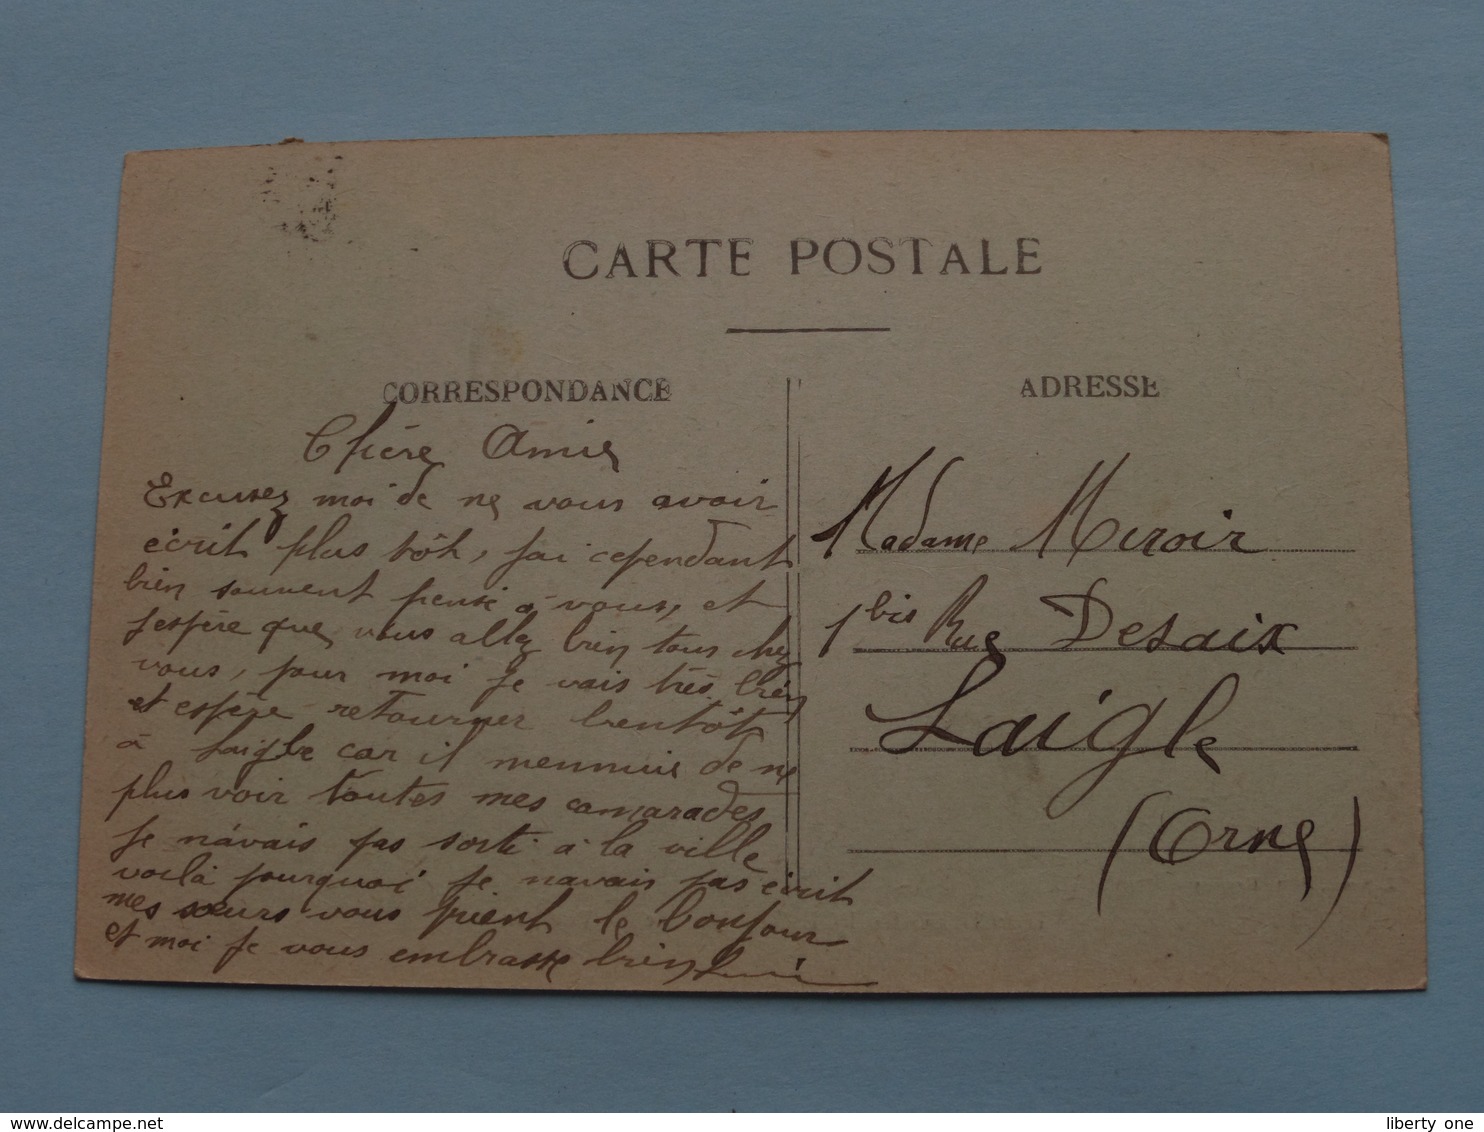 CARTE POSTALE
CORRESPONDANCE
Chère Amie
Excusez moi de ne vous avoir
écrit plus tôt, jai cependant
bien souvent pensé à vous, et
jespère que vous allez bien tous chez
vous, pour moi je vais très bien
et espère retourner bientôt
à Laigle car il mennuie de ne
plus voir toutes mes camarades
je n'avais pas sorti à la ville
voilà pourquoi je navais pas écrit
mes sœurs vous prient le bonjour
et moi je vous embrasse bien
ADRESSE
Madame Miroir
1 bis Rue Desaix
Laigle
(Orne)
liberty one